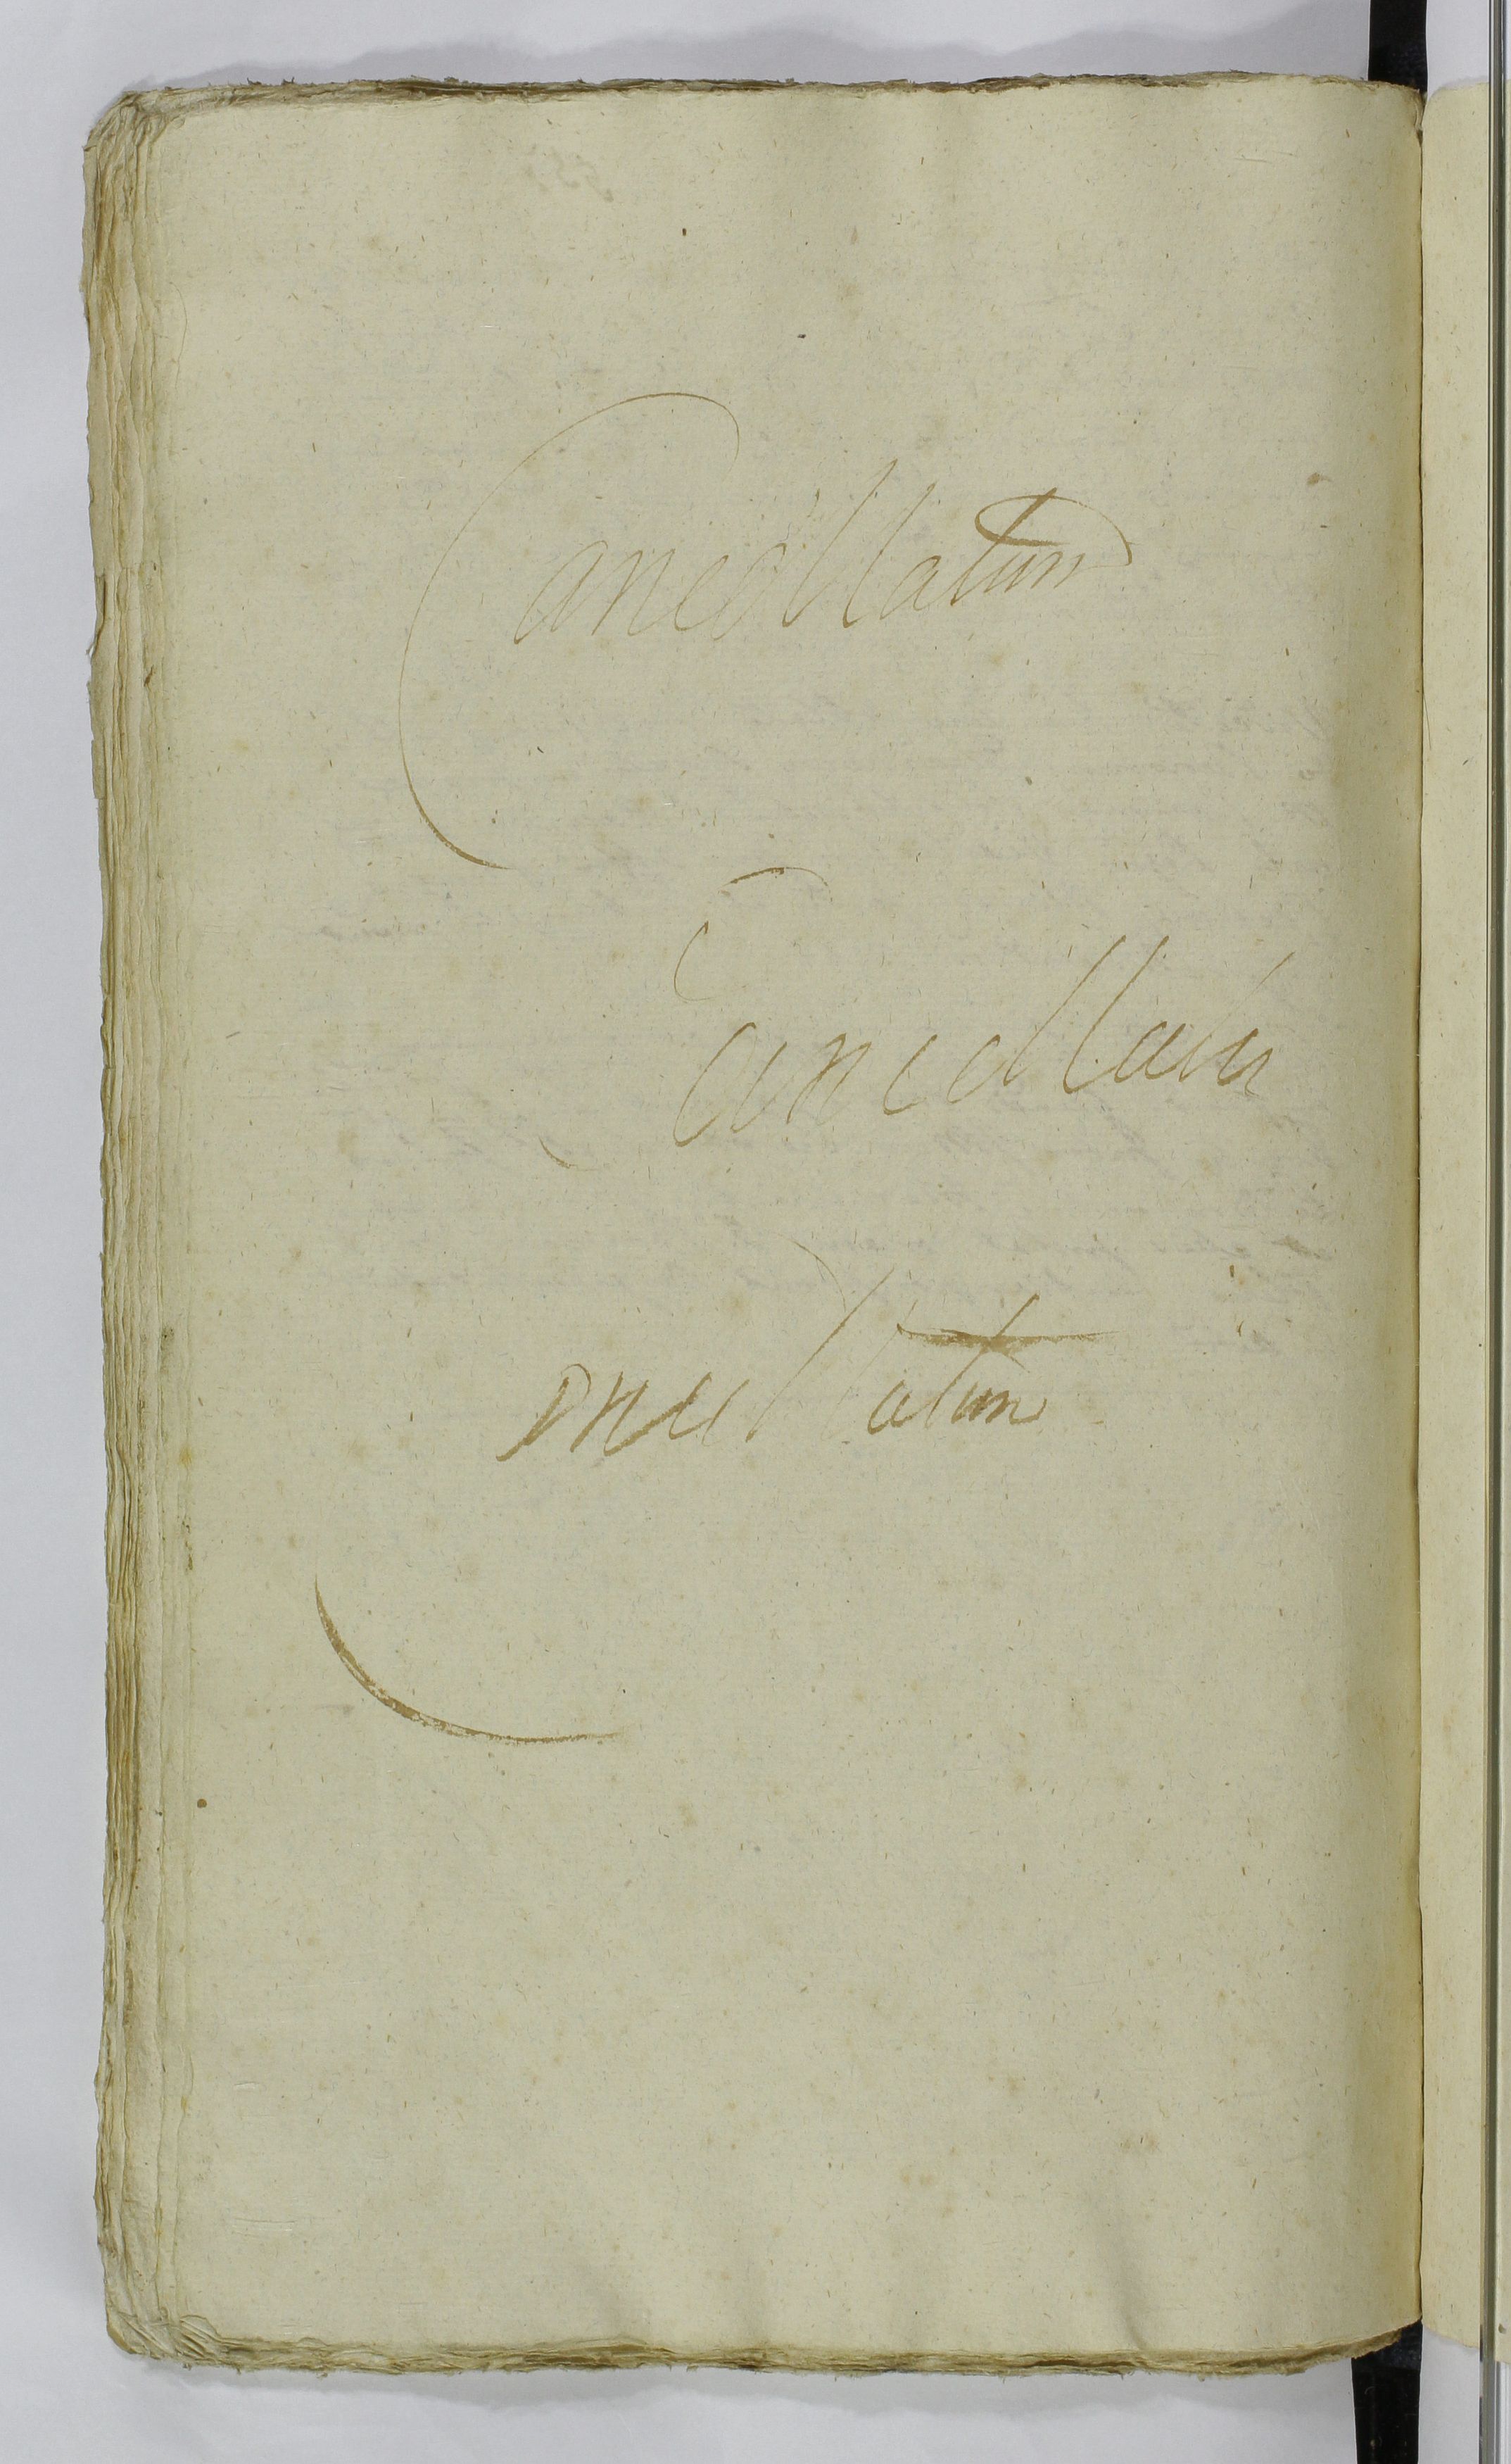 Cancellatum
Cancellatu
Cancellatum